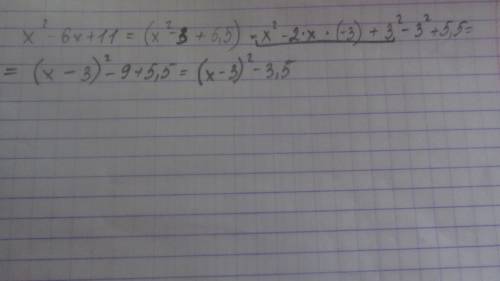 x² - 6x + 11 = (x² - 3 + 5,5) - x² - 2 · x · (-3) + 3² - 3² + 5,5 =
= (x - 3)² - 9 + 5,5 = (x - 3)² - 3,5